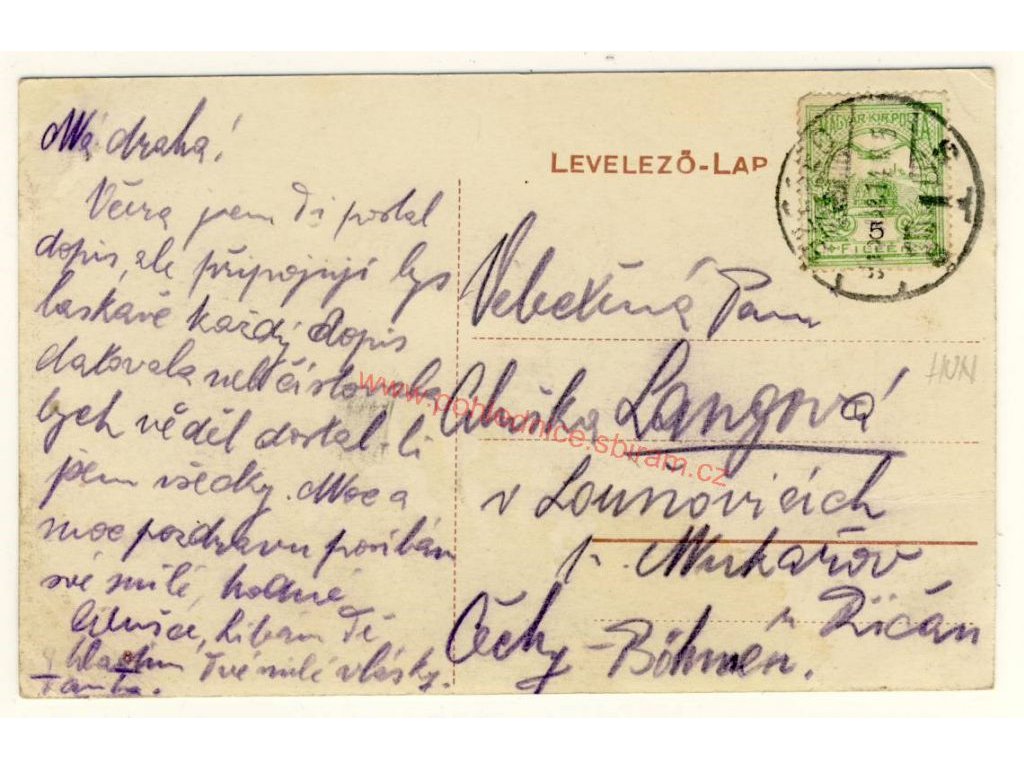 Má drahá!
Včera jsem Ti poslal
dopis, ale připojuji bys
laskavě každý dopis
datovala neb číslovala
bych věděl dostal-li
jsem všecky. Moc a
moc pozdravu posílám
své milé, hodné
líbám Tě
Tvé milé vlásky.
LEVELEZŐ-LAP
MAGYAR KIR. POSTA
5
FILLÉR
Velectěná Paní
Langová
v Lounovicích
p. Mukařov
u Říčan
Čechy - Böhmen.
HUN
www.pohlednice.sbiram.cz